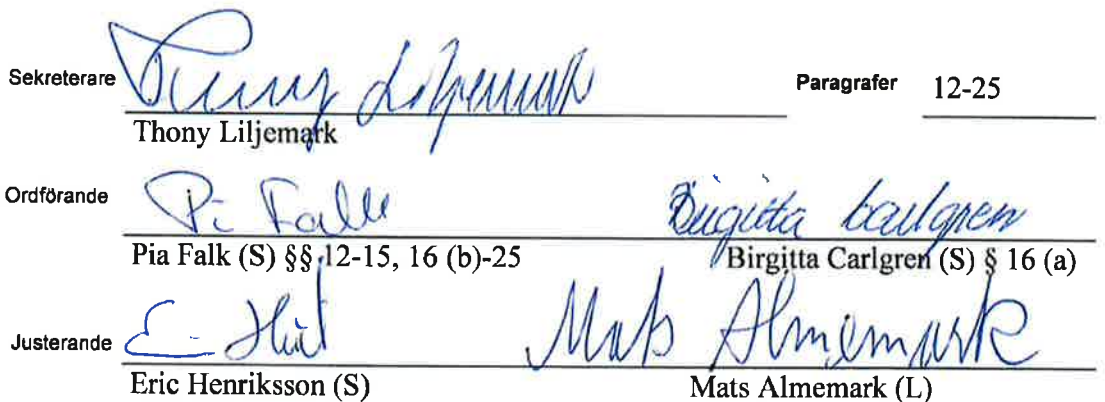 Sekreterare Thony Liljemark Paragrafer 12-25
Thony Liljemark
Ordförande Pia Falk Birgitta Carlgren
Pia Falk (S) §§ 12-15, 16 (b)-25 Birgitta Carlgren (S) § 16 (a)
Justerande Mats Almemark
Eric Henriksson (S) Mats Almemark (L)